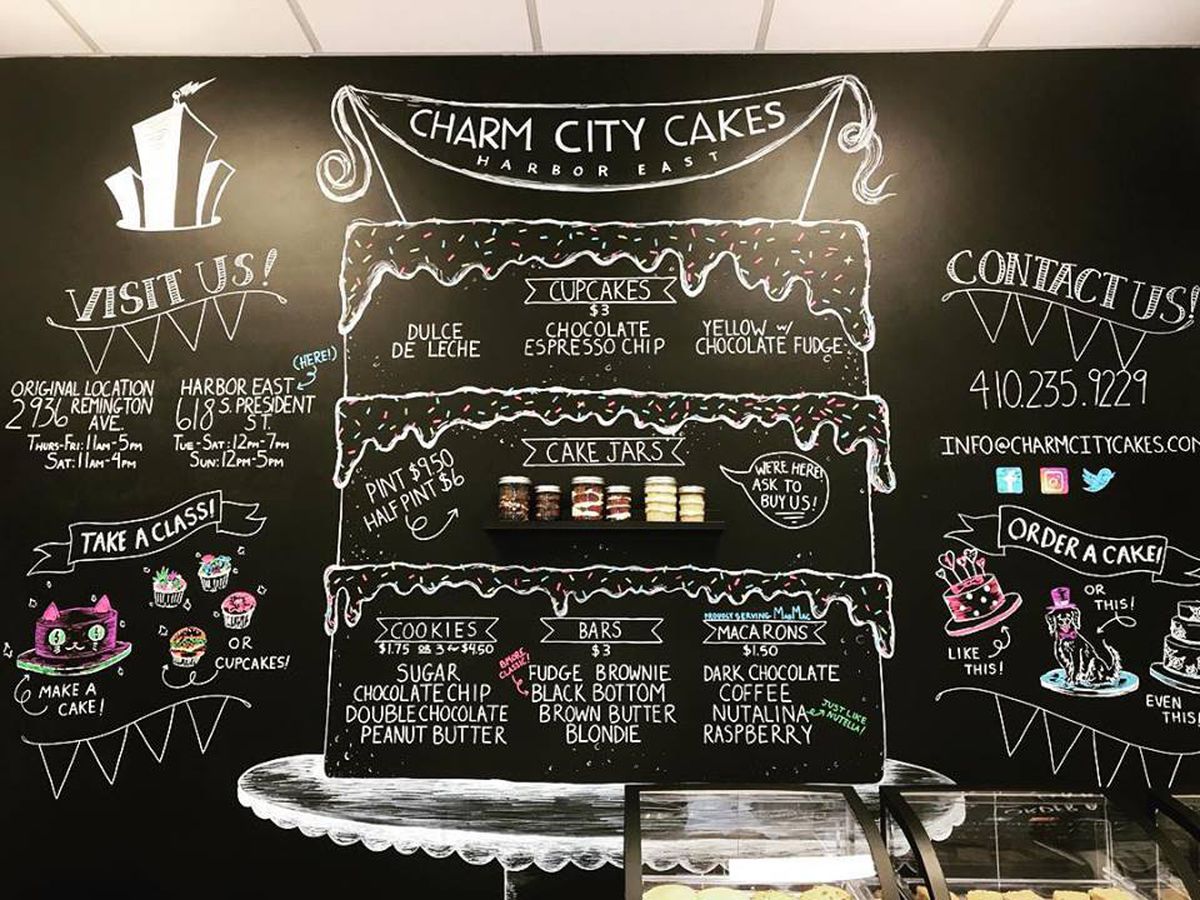 CHARM CITY CAKES
HARBOR EAST
VISIT US!
(HERE!)
ORIGINAL LOCATION
2936 REMINGTON
AVE.
THURS-FRI: 11AM-5PM
SAT: 11AM-4PM
HARBOR EAST
618 S. PRESIDENT
ST.
TUE-SAT: 12PM-7PM
SUN: 12PM-5PM
TAKE A CLASS!
OR
CUPCAKES!
MAKE A
CAKE!
CUPCAKES
$3
DULCE
DE LECHE
CHOCOLATE
ESPRESSO CHIP
YELLOW W/
CHOCOLATE FUDGE
CAKE JARS
PINT $9.50
HALF PINT $6
WE'RE HERE!
ASK TO
BUY US!
COOKIES
$1.75 OR 3 for $4.50
SUGAR
CHOCOLATE CHIP
DOUBLE CHOCOLATE
PEANUT BUTTER
BARS
$3
BMORE
CLASSIC!
FUDGE BROWNIE
BLACK BOTTOM
BROWN BUTTER
BLONDIE
PROUDLY SERVING
MACARONS
$1.50
DARK CHOCOLATE
COFFEE
NUTALINA
JUST LIKE
NUTELLA!
RASPBERRY
CONTACT US!
410.235.9229
INFO@CHARMCITYCAKES.COM
ORDER A CAKE!
LIKE
THIS!
OR
THIS!
EVEN
THIS